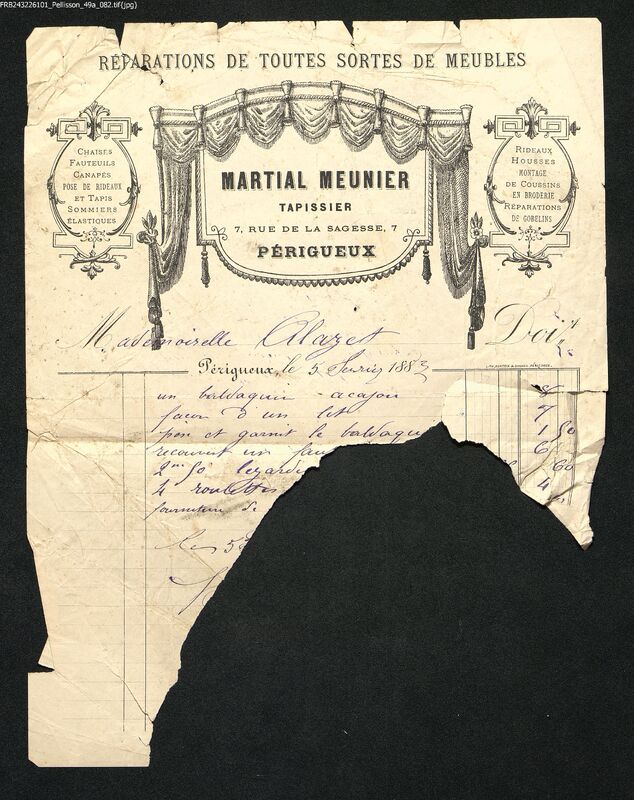 FRB243226101_Pellisson_49a_082.tif(jpg)
RÉPARATIONS DE TOUTES SORTES DE MEUBLES
CHAISES
FAUTEUILS
CANAPÉS
POSE DE RIDEAUX
ET TAPIS
SOMMIERS
ÉLASTIQUES
MARTIAL MEUNIER
TAPISSIER
7, RUE DE LA SAGESSE, 7
PÉRIGUEUX
RIDEAUX
HOUSSES
MONTAGE
DE COUSSINS
EN BRODERIE
RÉPARATIONS
DE GOBELINS
Mademoiselle Alazet Doit
Périgueux, le 5 février 1883
un baldaquin acajou 8
façon d'un lit 7
et garnit le baldaqu 1 50
recouvert un fau 6
2 m 50 lezard 60
4 roulettes 4
fourniture de